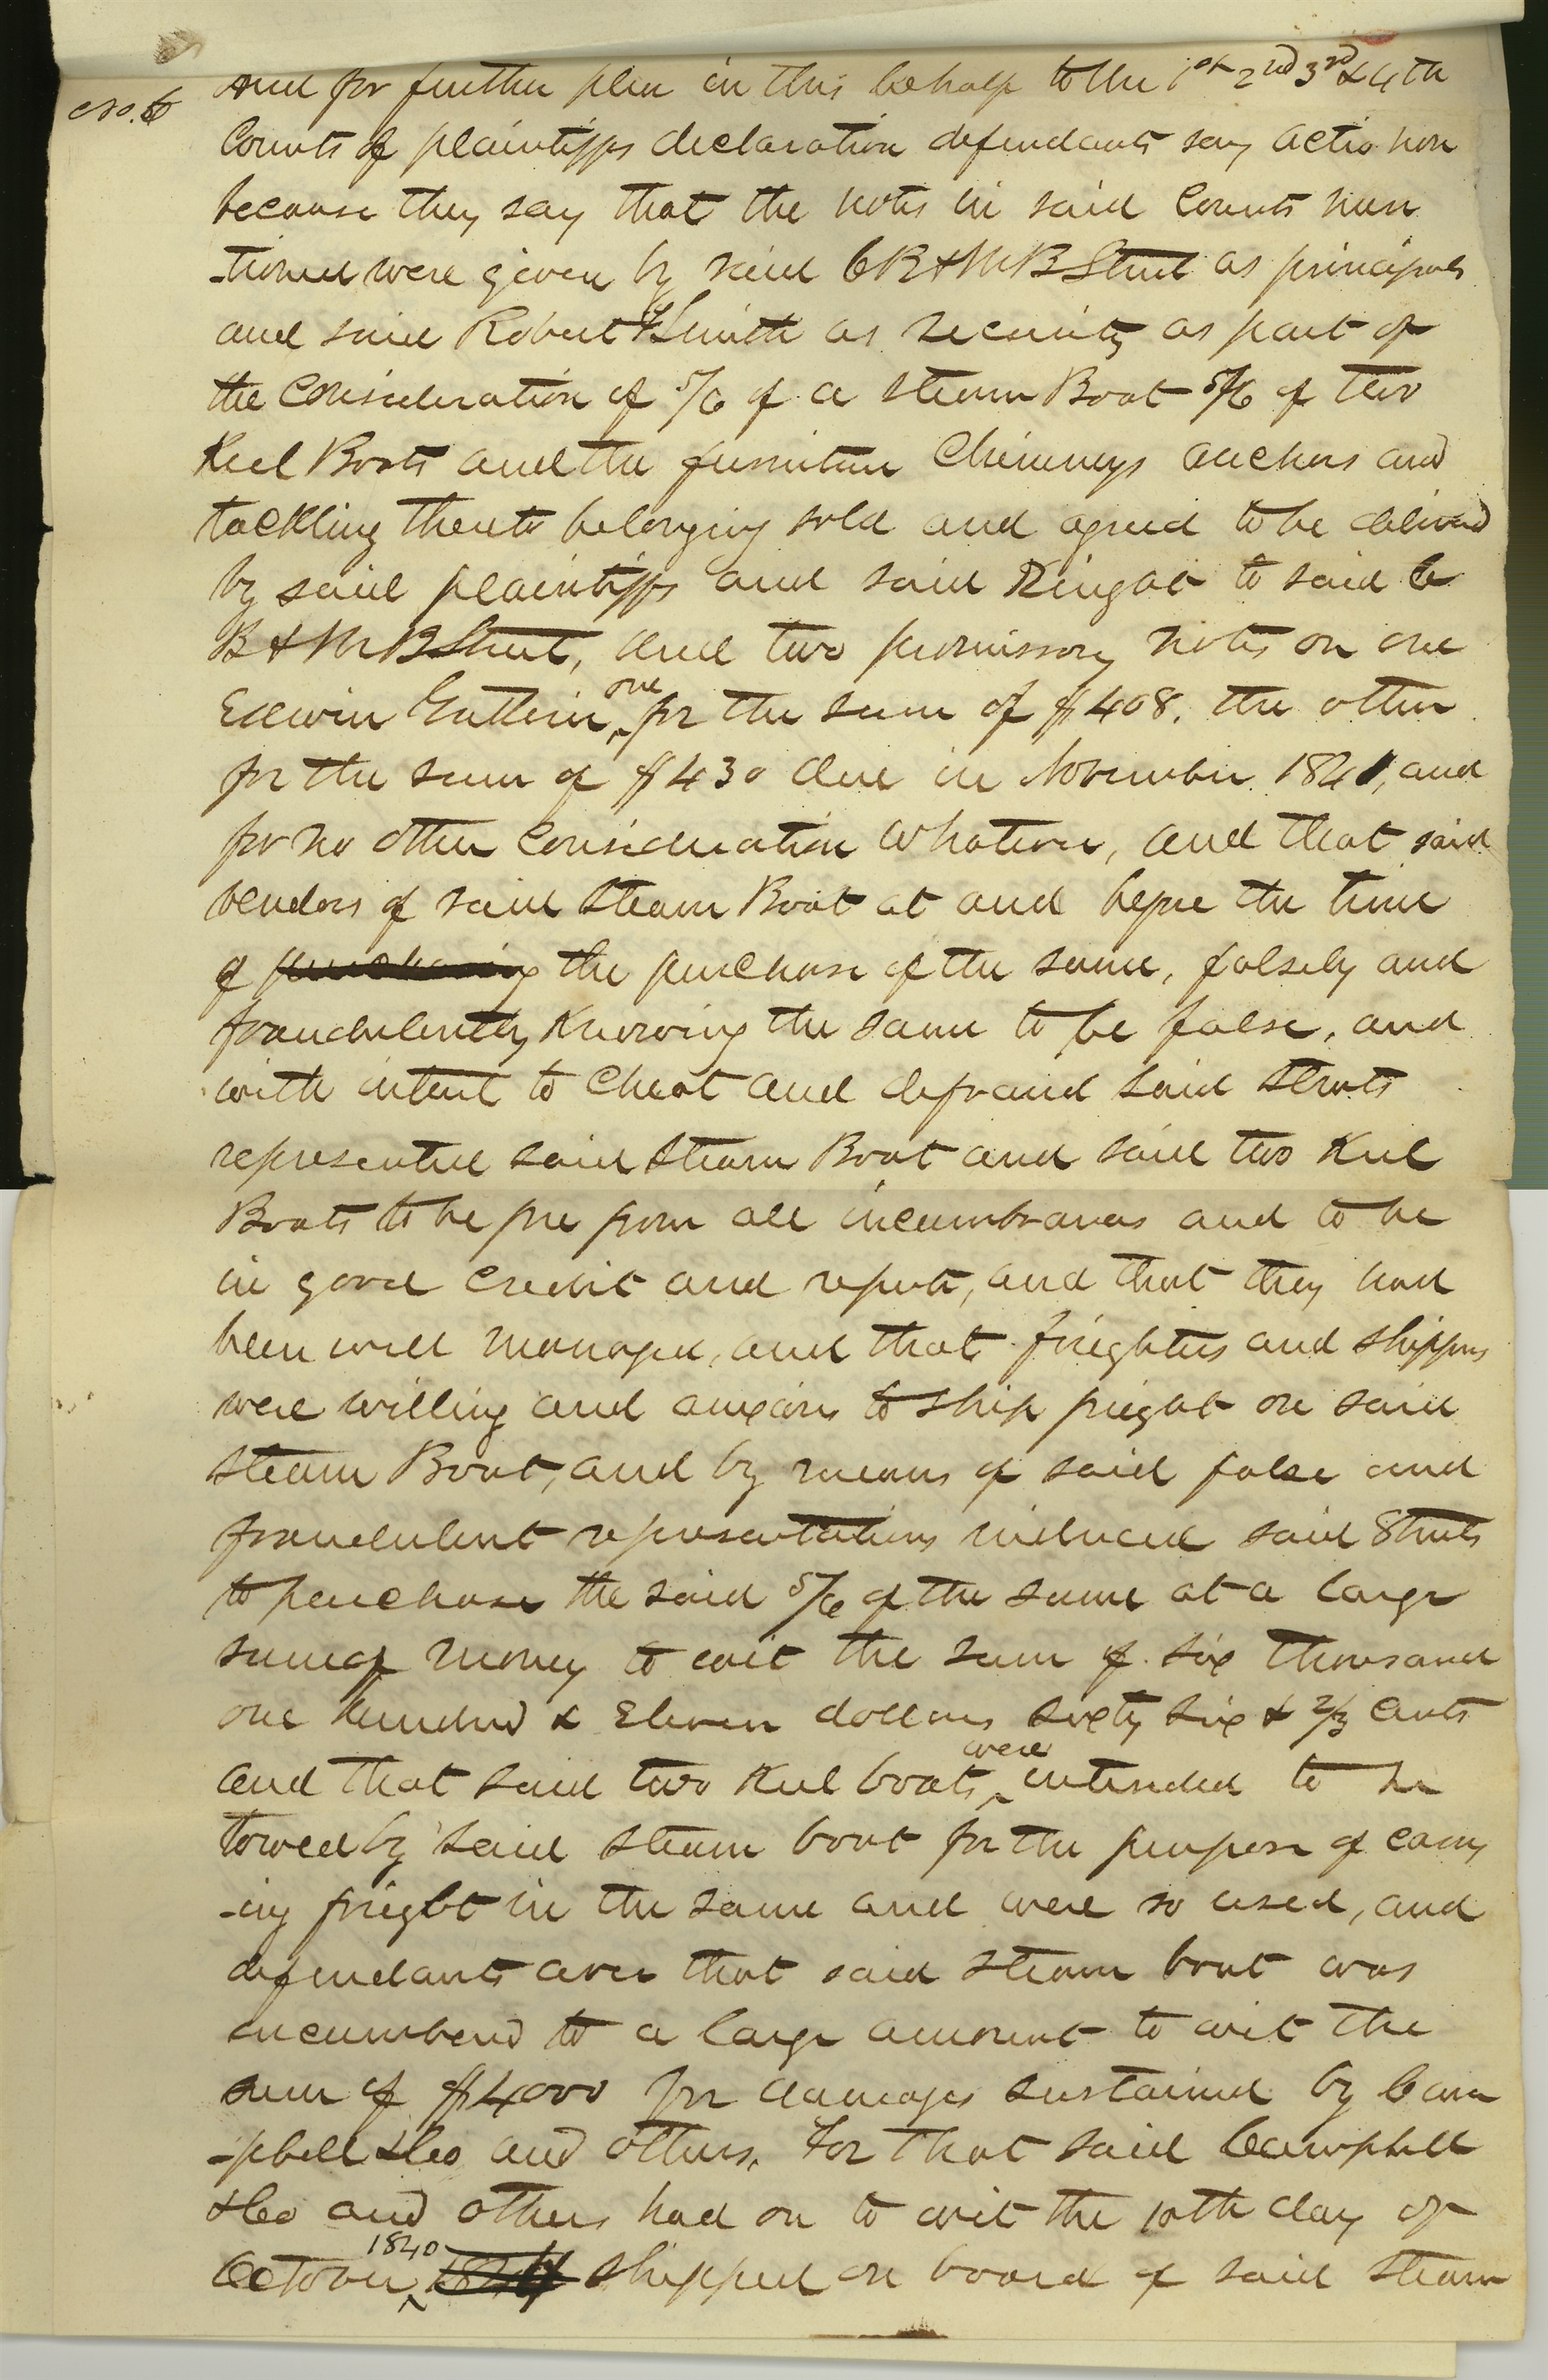 No. 6
And for further plea in this behalf to the 1st 2nd 3rd & 4th
Counts of plaintiffs declaration defendants say actio non
because they say that the notes in said Counts men
-tioned were given by said C B & M B Strut as principals
and said Robert Smith as security as part of
the Consideration of 5/6 of a Steam Boat 5/6 of two
Keel Boats and the furniture Chimneys anchors and
tackling thereto belonging sold and agreed to be delivered
by said plaintiffs and said Ringot to said C
B & M B Strut, and two promissory notes on one
Edwin one for the sum of $408. the other
for the sum of $430 due in November 1841, and
for no other Consideration Whatever, and that said
vendors of said Steam Boat at and before the time
of purchasing the purchase of the same, falsely and
fraudulently Knowing the same to be false, and
with intent to Cheat and defraud said Struts
represented said Steam Boat and said two Keel
Boats to be free from all incumbrances and to be
in good Credit and repute, and that they had
been well managed, and that freighters and shippers
were willing and anxious to ship freight on said
Steam Boat, and by means of said false and
fraudulent representations induced said Struts
to purchase the said 5/6 of the same at a large
sum of money to wit the sum of six thousand
one hundred & Eleven dollars sixty six & 2/3 Cents
and that said two Keel boats were intended to be
towed by said Steam boat for the purpose of carry
-ing freight in the same and were so used, and
defendants aver that said Steam boat was
incumbered to a large amount to wit the
sum of $4000 for damages sustained by Cam
-pbell & Co and others. For that said Campbell
& Co and others had on to wit the 10th day of
October 1840 shipped on board of said Steam